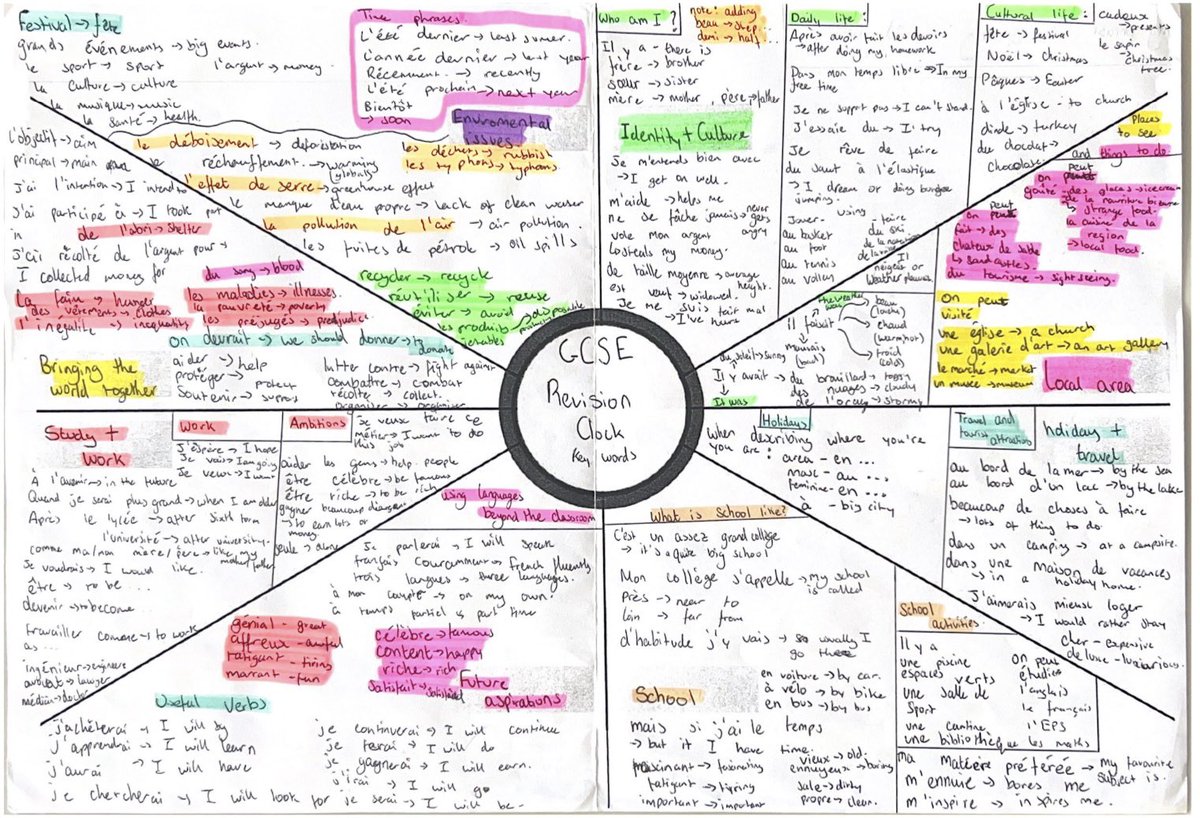 Festival → fête
grands événements → big events.
le sport → sport
l'argent → money.
la culture → culture
la musique → music
la santé → health.
Time phrases.
L'été dernier → last summer.
L'année dernier → last year
Récemment. → recently
L'été prochain → next year
Bientôt
→ soon
Enviromental
issues.
l'objectif → aim
principal → main
J'ai l'intention → I intend to
J'ai participé à → I took part
in
J'ai récolté de l'argent pour →
I collected money for
le déboisement → deforestation
le réchouffement. → warming
(globally)
les déchets → rubbish
les typhons → typhoons.
l'effet de serre → greenhouse effect
le manque d'eau propre → lack of clean water
la pollution de l'air → air pollution.
les fuites de pétrole → oil spills
de l'abri → shelter
du sang → blood
la faim → hunger
des vêtements → clothes
l'inegalité → inequality
les maladies → illnesses.
la pauvreté → poverty
les préjugés → predjudice
recycler → recycle
réutiliser → reuse
éviter → avoid
les produits
jetables
on devrait → we should
donner → to
donate
Bringing the
world together
aider → help
protéger → protect
soutenir → support
lutter contre → fight against
combattre → combat
récolte → collect.
organiser → organiser
Who am I?
note: adding
beau → step.
demi → half...
Il y a - there is
frère → brother
sœur → sister
mère → mother, père → father
Identity + Culture
Je m'entends bien avec
→ I get on well.
m'aide → helps me
ne se fâche jamais → never gets
angry
vole mon argent
→ steals my money.
de taille moyenne → average
height.
est veuf → widowed.
Je me suis fait mal
→ I've hurt
Daily life:
Après avoir fait les devoirs
→ after doing my homework
Dans mon temps libre → In my
free time
Je ne support pas → I can't stand.
J'essaie du → I try
Je rêve de faire
du saut à l'élastique
→ I dream of doing bungee
jumping.
using
Jouer - faire
au basket
au foot
au tennis
au volley
du ski
de la natation
de la voile
Il
neiget or
weather phrases
the weather
was
il faisait
beau
(lovely)
chaud
(warm/hot)
froid
(cold)
mauvais
(bad)
du soleil → sunny
Il y avait → du brouillard → foggy
des nuages → cloudy
de l'orage → stormy
It was
Cultural life:
cadeux
→ presents
fête → festival
le sapin
→ christmas
tree.
Noël → Christmas
Pâques → Easter
à l'église - to church
dinde → turkey
du chocolat →
chocolate
Places
to see
and things to do
on peut
goûté - des glaces → icecream
de la nourriture bizarre
→ strange food.
la cuisine de la
region
→ local food.
on peut
fait → des
chateux de sable
↳ sandcastles.
du tourisme → sight seeing.
on peut
visité
une église → a church
une galerie d'art → an art gallery
le marché → market
un musée → museum
Local area
GCSE
Revision
Clock
key words
Study +
Work
Work
J'éspère → I hope
Je vais → I am going
Je veux → I want
Ambitions
Je veux faire ce
métier → I want to do
this job
aider les gens → help people
être célèbre → be famous
être riche → to be rich
gagner beaucoup d'argent
→ to earn lots of
money.
seule → alone
À l'avenir → in the future
Quand je serai plus grand → when I am older
Après le lycée → after sixth form
l'université → after university.
comme ma/mon mère/père → like my
mother/father
Je voudrais → I would like.
être → to be...
devenir → to become...
travailler comme → to work
as...
ingénieur → engineer
avocat → lawyer
médian → doctor
using languages
beyond the classroom
Je parlerai → I will speak
français couramment → French fluently
trois langues → three languages.
à mon compte → on my own.
à temps partiel → part time
genial - great
affreux → awful
fatigant - tiring
marrant - fun
célèbre → famous
content → happy
riche → rich
satisfait → satisfied
Future
aspirations
Useful verbs
j'achèterai → I will by
j'apprendrai → I will learn
j'aurai → I will have
je chercherai → I will look for
je continuerai → I will continue
je ferai → I will do
je gagnerai → I will earn.
j'irai → I will go
je serai → I will be.
Holidays
When describing where you're
you are:
area - en ...
masc - au ...,
feminine - en ...,
à - big city
Travel and
tourist attraction
holiday +
travel
au bord de la mer → by the sea
au bord d'un lac → by the lake
beaucoup de choses à faire
→ lots of thing to do
dans un camping → at a campsite.
dans une maison de vacances
→ in a holiday home.
J'aimerais mieux loger
→ I would rather stay
cher - expensive
de luxe - luxurious.
What is School like?
C'est un assez grand collège
→ it's a quite big school
Mon collège s'appelle → my school
is called
Près → near to
Loin → far from
d'habitude j'y vais → usually I
go there
en voiture → by car.
à vélo → by bike
en bus → by bus
School
mais si j'ai le temps
→ but if I have time.
fascinant → fascinating
fatigant → tiring
important → important
vieux → old.
ennuyeux → boring
sale → dirty
propre → clean.
School
activities.
Il y a
une piscine
espaces verts
une salle de
sport
une cantine
une bibliothèque
on peut
étudier
l'anglais
le français
l'EPS
les maths
ma matière préférée → my favourite
subject is.
m'ennuie → bores me
m'inspire → inspires me.